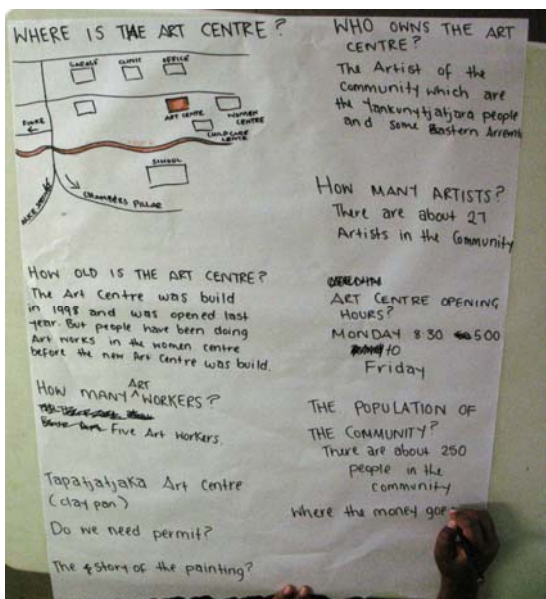 WHERE IS THE ART CENTRE?
GARAGE
CLINIC
OFFICE
ART CENTRE
WOMEN
CENTRE
CHILDCARE
CENTRE
FINKE
SCHOOL
ALICE SPRINGS
CHAMBERS PILLAR
HOW OLD IS THE ART CENTRE?
The Art Centre was build
in 1998 and was opened last
year. But people have been doing
Art works in the women centre
before the new Art Centre was build.
HOW MANY ART WORKERS?
Five Art Workers.
Tapatjatjaka Art Centre
(clay pan)
Do we need permit?
The story of the painting?
WHO OWNS THE ART
CENTRE?
The Artist of the
Community which are
the Yankunytjatjara people
and some Eastern
HOW MANY ARTISTS?
There are about 27
Artists in the Community
ART CENTRE OPENING
HOURS?
MONDAY 8:30 5:00
to
Friday
THE POPULATION OF
THE COMMUNITY?
There are about 250
people in the
community
Where the money goe